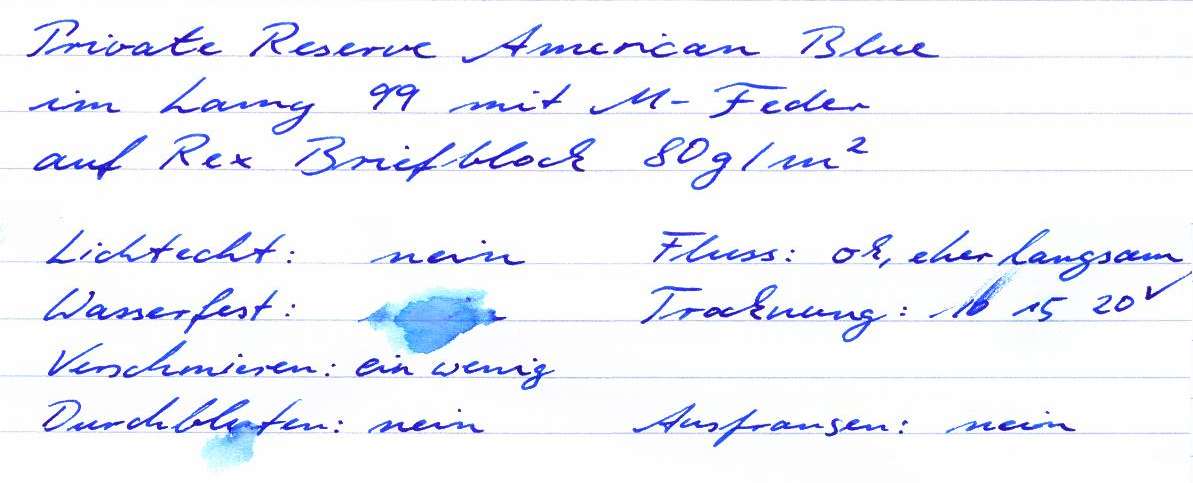 Private Reserve American Blue
im Lamy 99 mit M-Feder
auf Rex Briefblock 80g/m²
Lichtecht: nein Fluss: ok, eher langsam
Wasserfest: Trocknung: 10 15 20✓
Verschmieren: ein wenig
Durchbluten: nein Ausfransen: nein